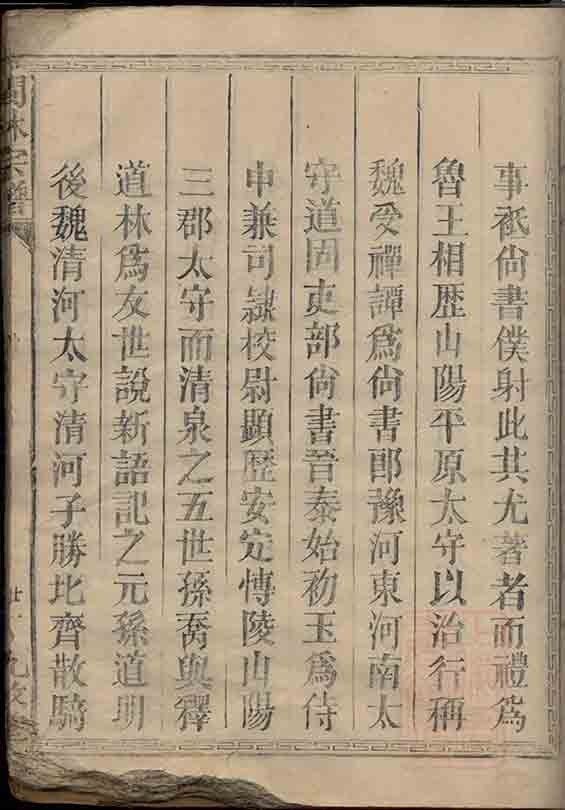 事祗尙書僕射此其尤著者而禮爲
魯王相歷山陽平原太守以治行稱
魏受禪譚爲尙書郎豫河東河南太
守道固吏部尙書晉泰始初玉爲侍
中兼司隸校尉顯歷安定慱陵山陽
三郡太守而清泉之五世孫喬與釋
道林爲友世說新語記之元孫道明
後魏清河太守清河子勝北齊散騎
宗譜